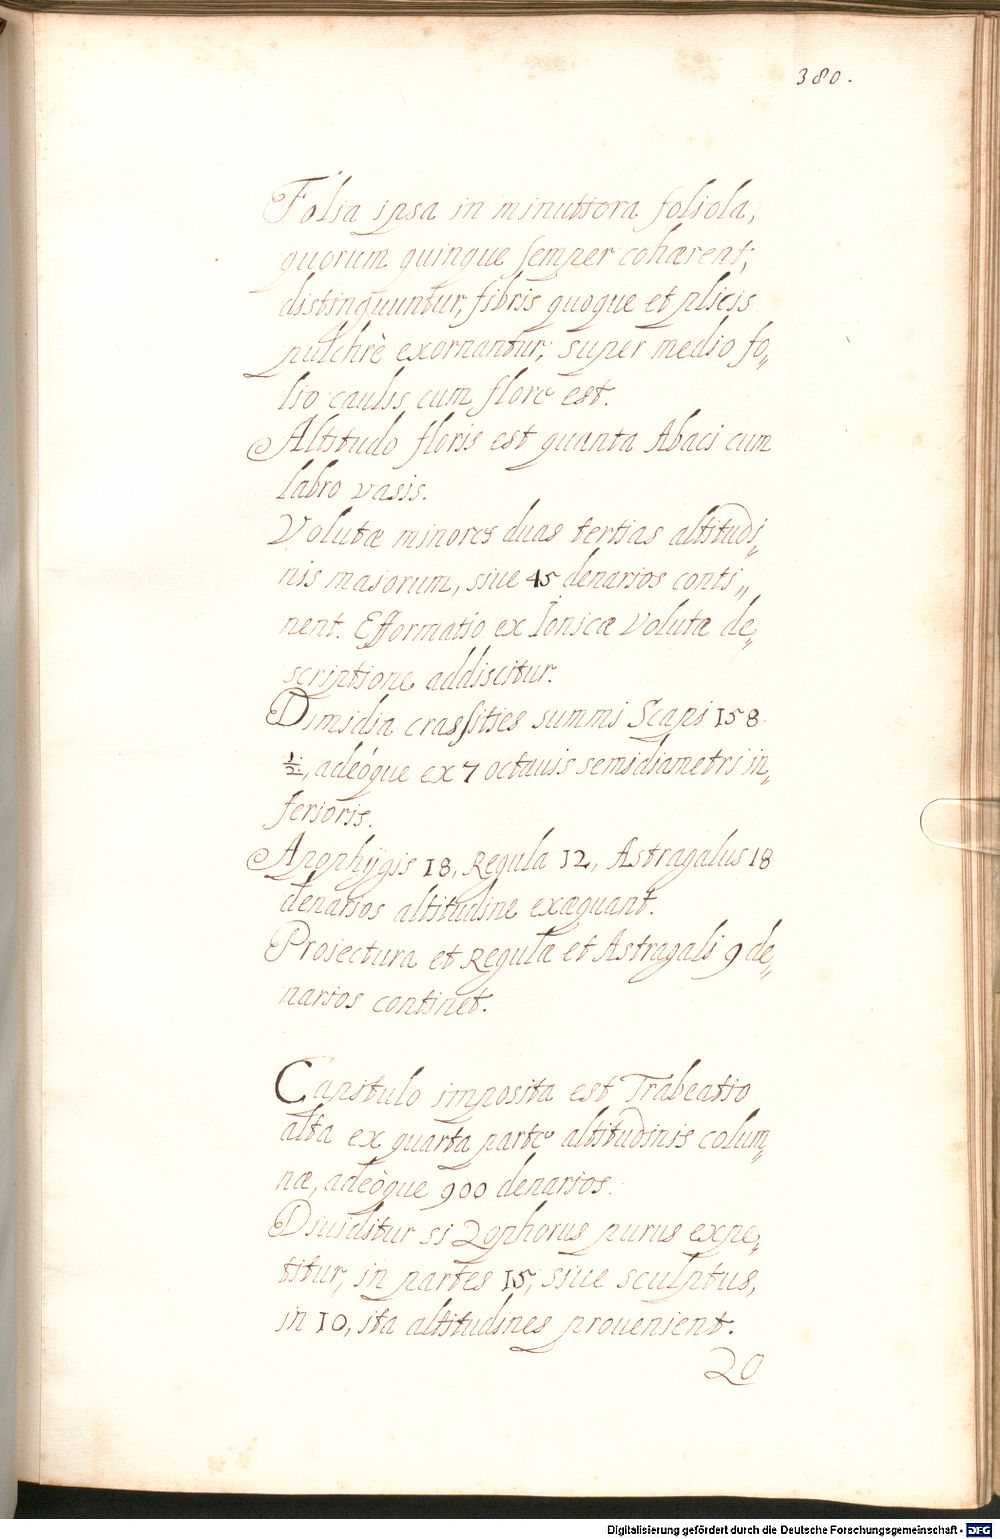 380.
Folia ipsa in minutiora foliola,
quorum quinque semper cohærent,
distinguuntur, fibris quoque et plicis
pulchrè exornantur; super medio fo„
lio caulis cum flore est.
Altitudo floris est quanta Abaci cum
labro vasis.
Volutæ minores duas tertias altitudi„
nis maiorum, siue 45 denarios conti„
nent. Efformatio ex Ionicæ Volutæ de„
scriptione addiscitur.
Dimidia crassities summi Scapi 158
1/2, adeóque ex 7 octauis semidiametri in„
ferioris.
Apophÿgis 18, Regula 12, Astragalus 18
denarios altitudine exæquant.
Proiectura et Regulæ et Astragali 9 de„
narios continet.
Capitulo imposita est Trabeatio
alta ex quarta parte altitudinis colum„
næ, adeòque 900 denarios.
Diuiditur si Zophorus purus expe„
titur, in partes 15, siue sculptus,
in 10, ita altitudines prouenient.
Zo
Digitalisierung gefördert durch die Deutsche Forschungsgemeinschaft - DFG